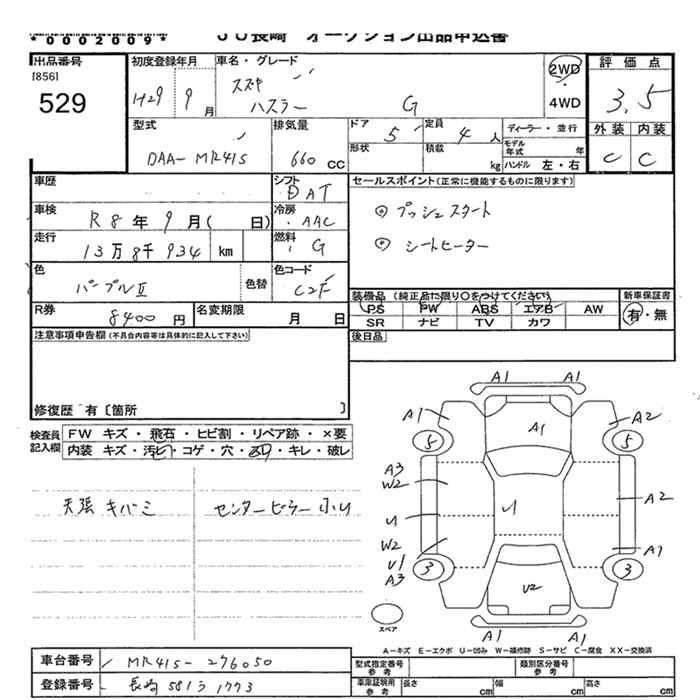 *0002009* JU長崎 オークション出品申込書
出品番号 [856] 529
初度登録年月 H29 9月
車名・グレード スズキ ハスラー G
2WD ・ 4WD
評価点 3.5
外装 C 内装 C
型式 DAA-MR41S
排気量 660 CC
ドア 5 定員 4人
形状 積載 kg
ディーラー・並行
モデル年式 年
ハンドル 左・右
車歴
シフト DAT
車検 R8年 9月( 日)
冷房 AAC
走行 13万8千934 km
燃料 G
色 パープルⅡ 色替
色コード C2F
R券 8400円
名変期限 月 日
セールスポイント(正常に機能するものに限ります)
◎ プッシュスタート
◎ シートヒーター
装備品(純正品に限り○をつけてください) 新車保証書
PS PW ABS エアB AW 有・無
SR ナビ TV カワ
後日品
注意事項申告欄(不具合内容等は具体的に記入して下さい)
修復歴 有〔箇所 〕
検査員記入欄
FW キズ・飛石・ヒビ割・リペア跡・×要
内装 キズ・汚レ・コゲ・穴・スレ・キレ・破レ
天張キバミ
センターピラー小U
A1
A1
A1 A1 A2
5 5
A3
W2
A2
U U
W2
U1
A3
A1
3 3
U2
スペア
A1 A1
A-キズ E-エクボ U-凹み W-補修跡 S-サビ C-腐食 XX-交換済
車台番号 MR41S-276050
登録番号 長崎 581う1773
型式指定番号 参考 類別区分番号 参考
車庫証明用 参考 長さ cm 幅 cm 高さ cm